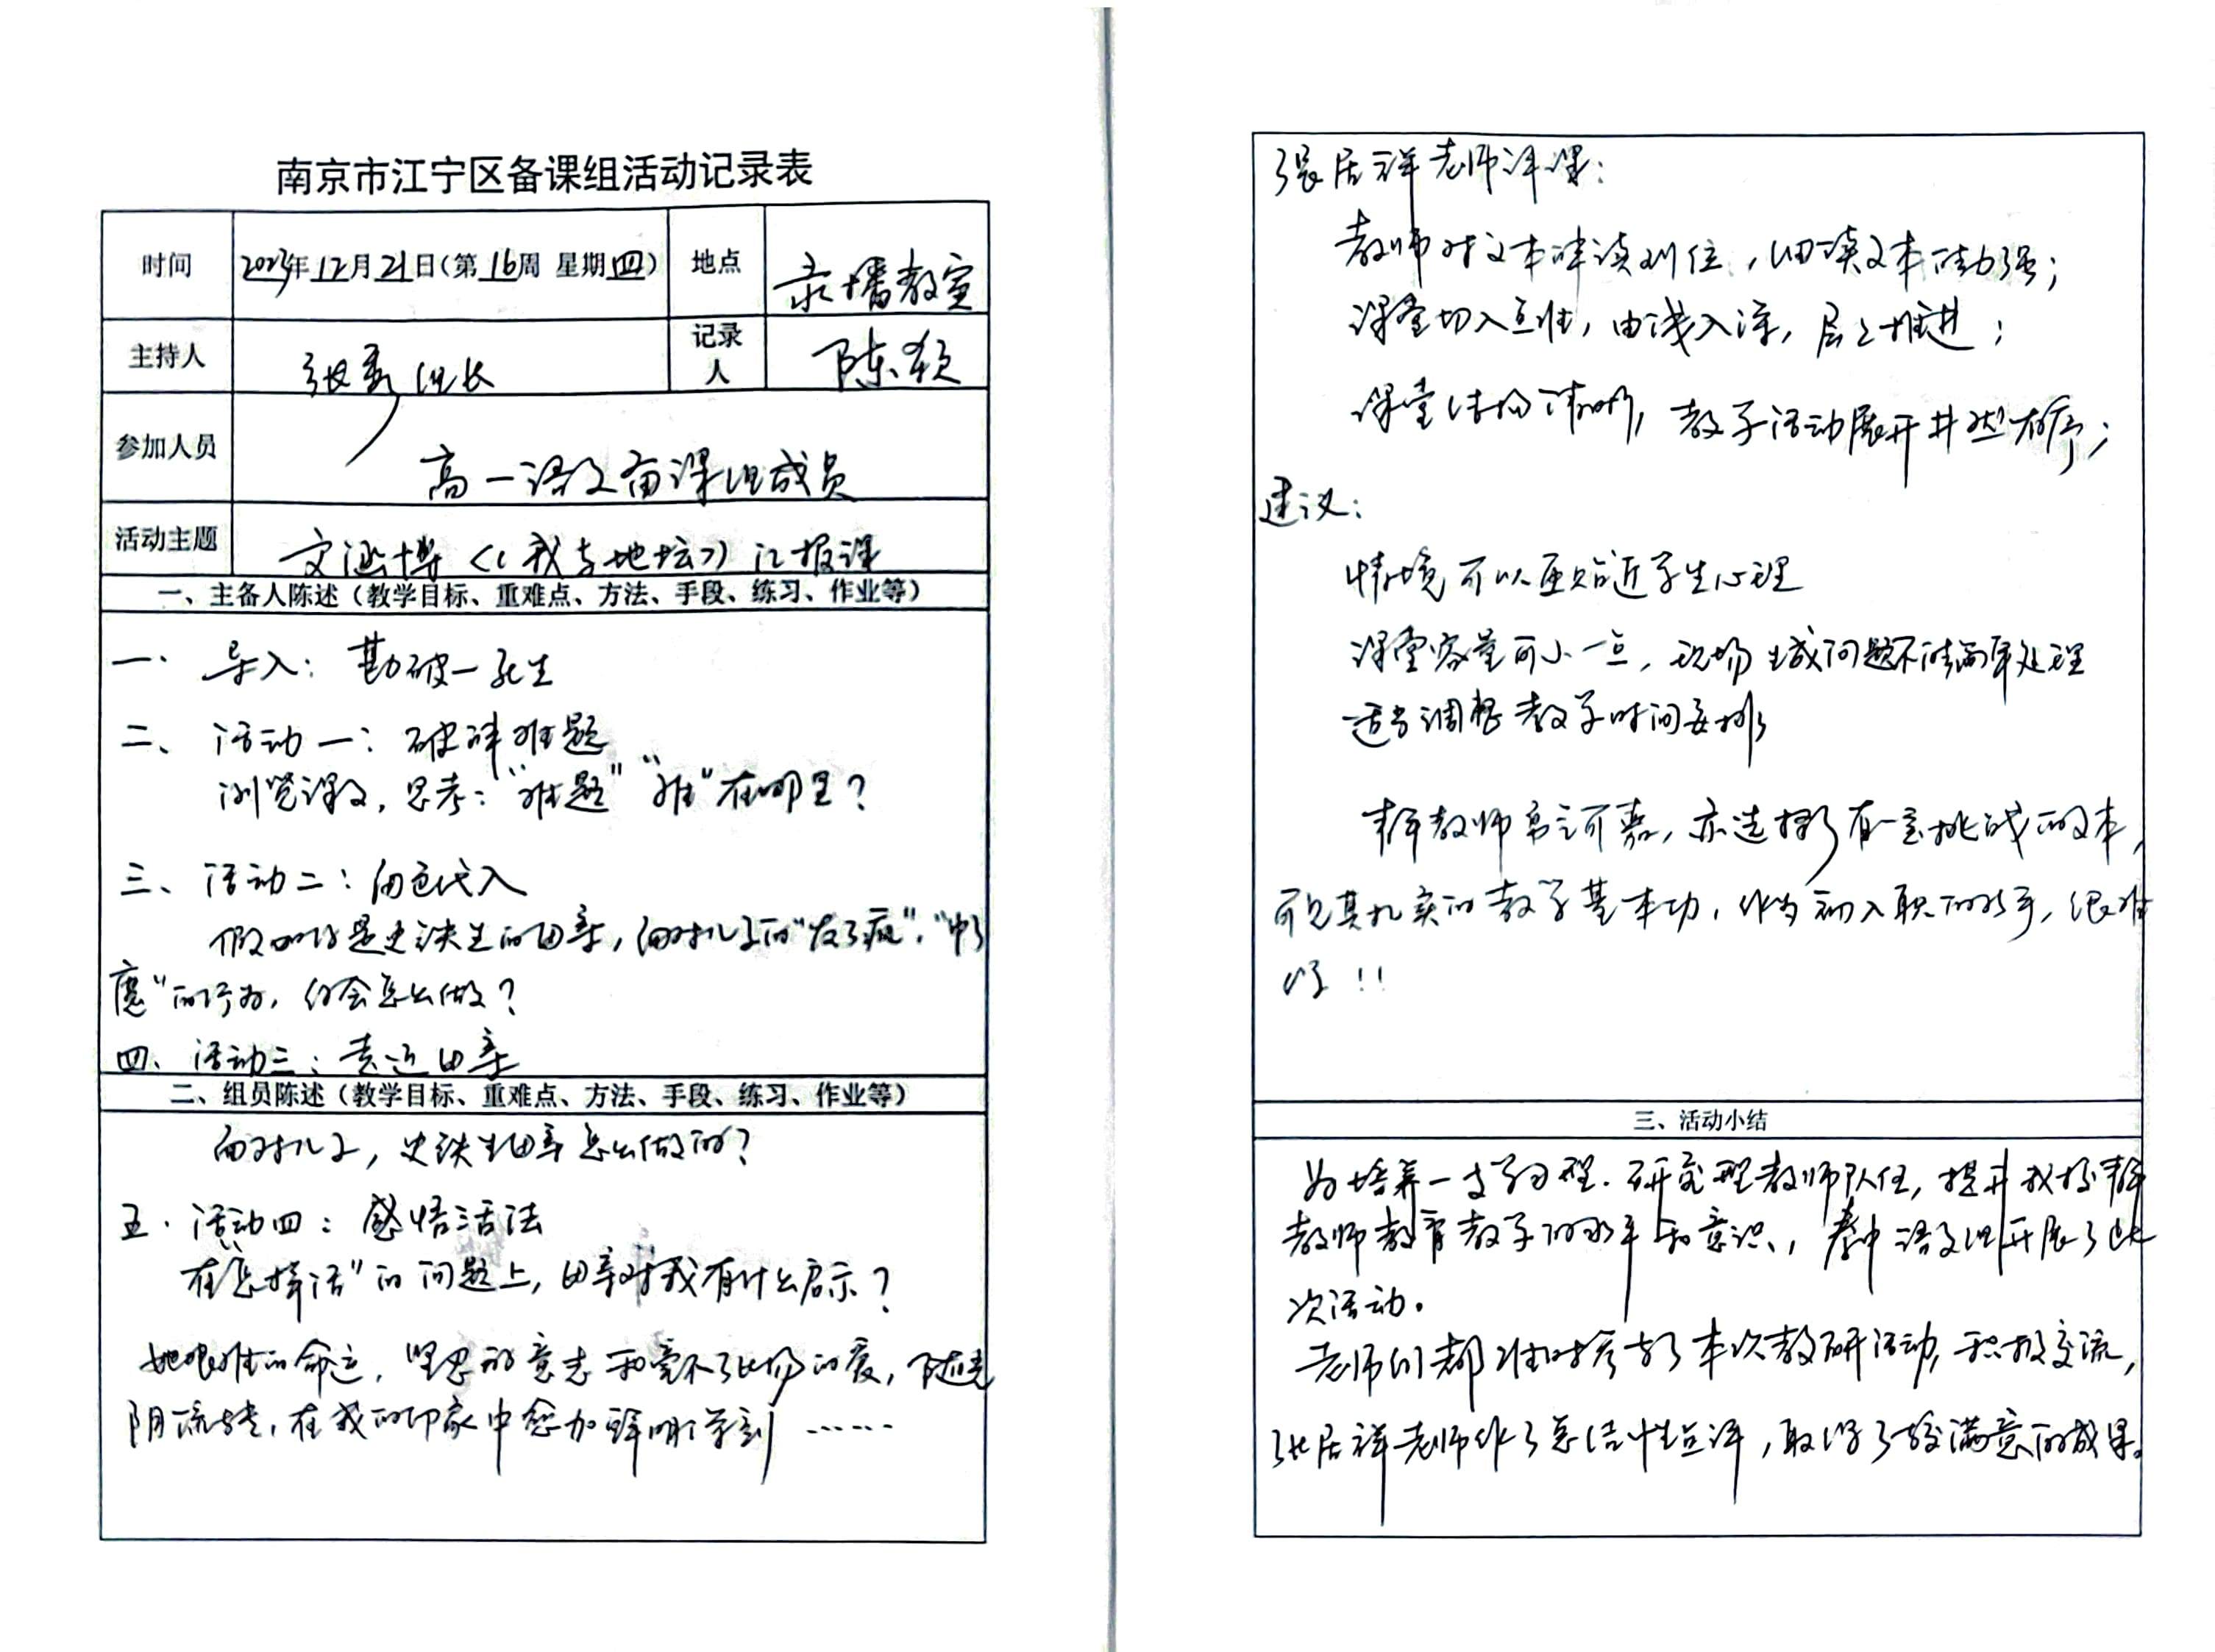 南京市江宁区备课组活动记录表
时间 2023年12月21日(第16周 星期四) 地点 录播教室
主持人 张 组长 记录人 陈颖
参加人员 高一语文备课组成员
活动主题 文涵博《我与地坛》汇报课
一、主备人陈述(教学目标、重难点、方法、手段、练习、作业等)
一. 导入: 勘破一死生
二、活动一: 破解难题
浏览课文, 思考:"难题""难"在哪里?
三、活动二: 角色代入
假如你是史铁生的母亲, 面对儿子的"发了疯"、"中了
魔"的行为, 你会怎么做?
四、活动三: 走近母亲
二、组员陈述(教学目标、重难点、方法、手段、练习、作业等)
面对儿子, 史铁生母亲怎么做的?
五. 活动四: 感悟活法
在"怎样活"的问题上, 母亲对我有什么启示?
她艰难的命运, 坚忍的意志和毫不张扬的爱, 随光
阴流转, 在我的印象中愈加鲜明深刻 ······
张居祥老师评课:
教师对文本解读到位, 细读文本能力强;
课堂切入点准, 由浅入深, 层层推进;
课堂结构清晰, 教学活动展开井然有序;
建议:
情境可以更贴近学生心理
课堂容量可小一点, 现场生成问题不能简单处理
适当调整教学时间安排
青年教师勇气可嘉, 亦选择了有一定挑战的文本,
可见其扎实的教学基本功, 作为初入职的新手, 很难
得!!
三、活动小结
为培养一支学习型、研究型教师队伍, 提升我校青年
教师教育教学的水平和意识, 高中语文组开展了此
次活动。
老师们都准时参加了本次教研活动, 积极交流,
张居祥老师作了总结性点评, 取得了较满意的成果。